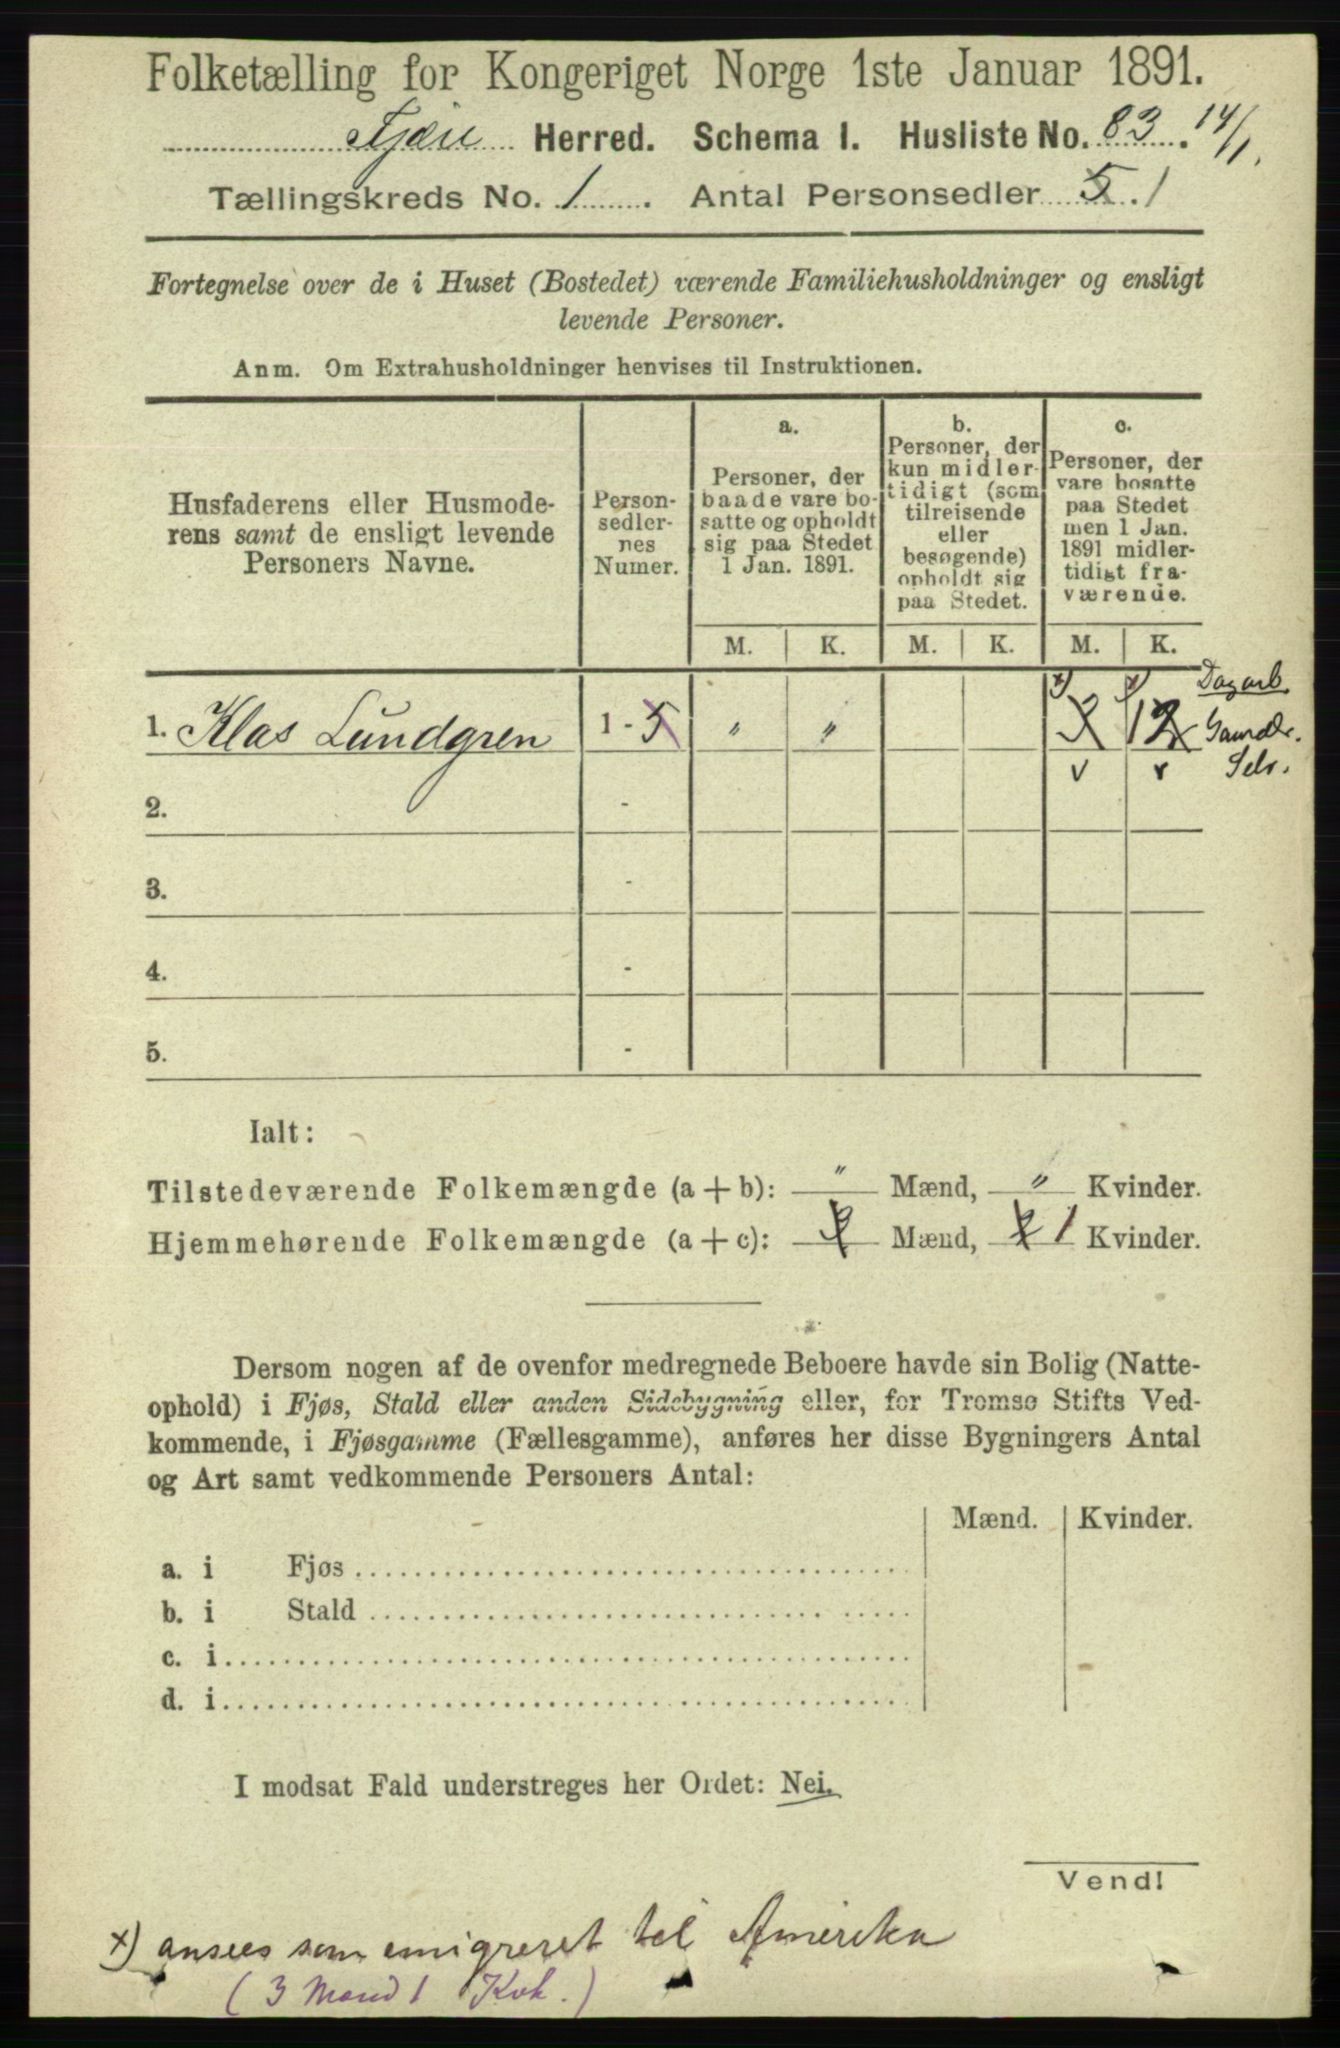 Folketælling for Kongeriget Norge 1ste Januar 1891.
Fjære Herred. Schema I. Husliste No. 83. 14/1.
Tællingskreds No. 1. Antal Personsedler 5. 1
Fortegnelse over de i Huset (Bostedet) værende Familiehusholdninger og ensligt
levende Personer.
Anm. Om Extrahusholdninger henvises til Instruktionen.
Husfaderens eller Husmode-
rens samt de ensligt levende
Personers Navne.
Person-
sedler-
nes
Numer.
a.
Personer, der
baade vare bo-
satte og opholdt
sig paa Stedet
1 Jan. 1891.
b.
Personer, der
kun midler-
tidigt (som
tilreisende
eller
besøgende)
opholdt sig
paa Stedet.
c.
Personer, der
vare bosatte
paa Stedet
men 1 Jan.
1891 midler-
tidigt fra-
værende.
M. K. M. K. M. K.
x) x) Dagarb.
1. Klas Lundgren 1 - 5 " " 3 1 2
v v Selv.
2. -
3. -
4. -
5. -
Ialt:
Tilstedeværende Folkemængde (a + b): " Mænd, " Kvinder.
Hjemmehørende Folkemængde (a + c): 3 Mænd, 2 1 Kvinder.
Dersom nogen af de ovenfor medregnede Beboere havde sin Bolig (Natte-
ophold) i Fjøs, Stald eller anden Sidebygning eller, for Tromsø Stifts Ved-
kommende, i Fjøsgamme (Fællesgamme), anføres her disse Bygningers Antal
og Art samt vedkommende Personers Antal:
Mænd. Kvinder.
a. i Fjøs
b. i Stald
c. i
d. i
I modsat Fald understreges her Ordet: Nei.
Vend!
x) ansees som emigreret til Amerika
(3 Mænd 1 Kvk.)